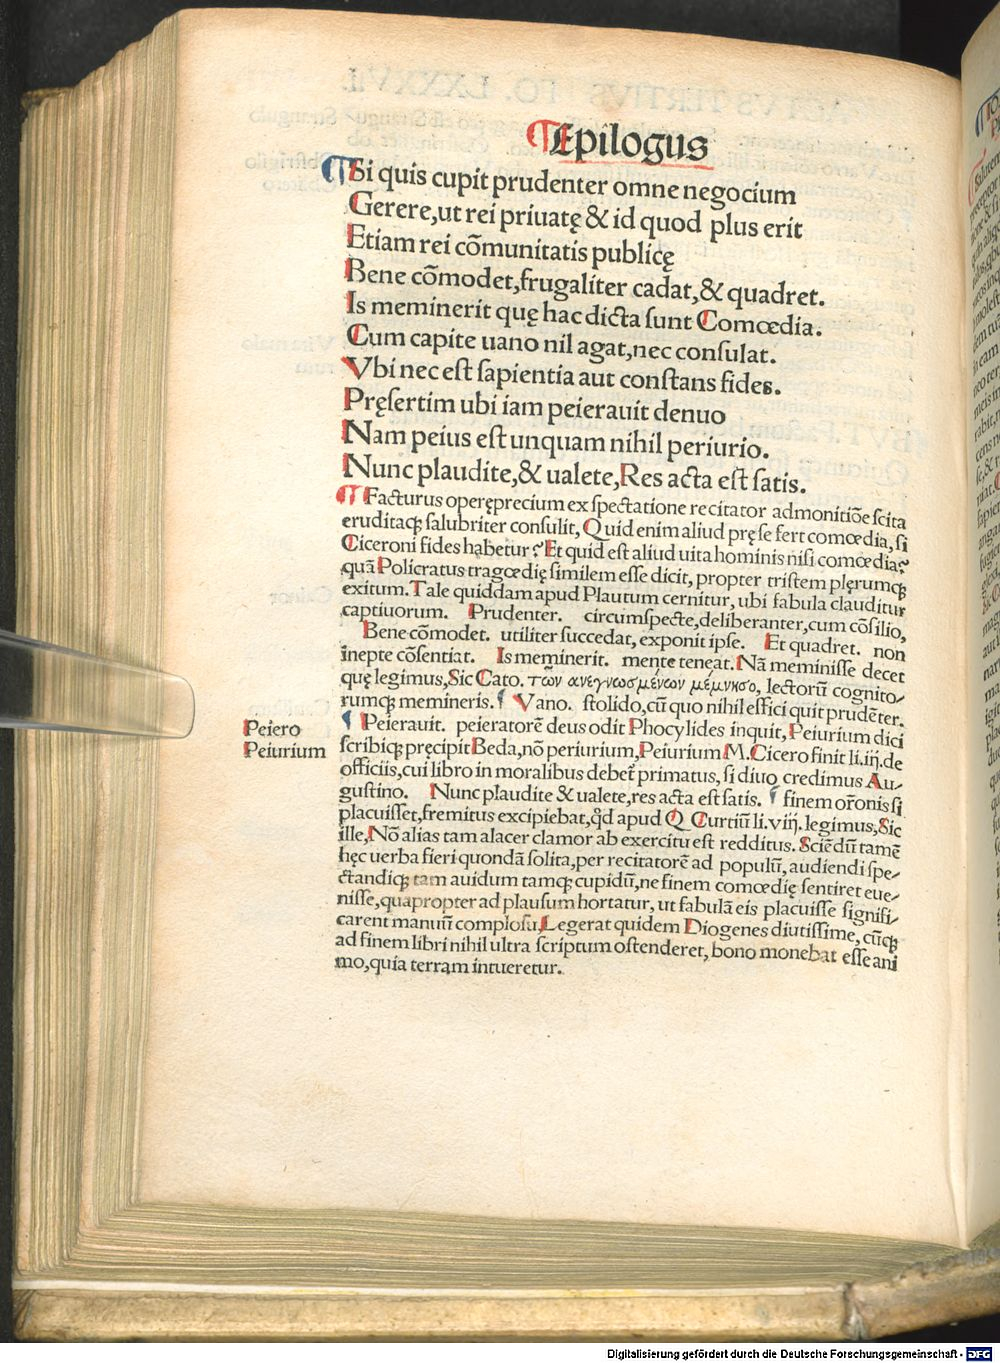 ¶Epilogus
¶Si quis cupit prudenter omne negocium
Gerere,ut rei priuatę & id quod plus erit
Etiam rei cõmunitatis publicę
Bene cõmodet,frugaliter cadat,& quadret.
Is meminerit quę hac dicta sunt Comœdia.
Cum capite uano nil agat,nec consulat.
Vbi nec est sapientia aut constans fides.
Pręsertim ubi iam peierauit denuo
Nam peius est unquam nihil periurio.
Nunc plaudite,& ualete,Res acta est satis.
¶Facturus operęprecium ex spectatione recitator admonitiõe scita
eruditaq; salubriter consulit, Quid enim aliud pręse fert comœdia, si
Ciceroni fides habetur? Et quid est aliud uita hominis nisi comœdia?
quã Policratus tragœdię similem esse dicit, propter tristem plęrumq;
exitum. Tale quiddam apud Plautum cernitur, ubi fabula clauditur
captiuorum. Prudenter. circumspecte,deliberanter,cum cõsilio,
Bene cõmodet. utiliter succedat, exponit ipse. Et quadret. non
inepte cõsentiat. Is meminerit. mente teneat. Nã meminisse decet
quę legimus,Sic Cato. τῶν ανεγνωσμένων μέμνησο, lectorũ cognito-
rumq; memineris. ¶ Vano. stolido,cũ quo nihil effici quit prudẽter.
¶ Peierauit. peieratorẽ deus odit Phocylides inquit, Peiurium dici
Peiero
scribiq; pręcipit Beda,nõ periurium,Peiurium M.Cicero finit li.iij.de
Peiurium
officiis,cui libro in moralibus debet̃ primatus, si diuo credimus Au-
gustino. Nunc plaudite & ualete,res acta est satis. ¶ finem or̃onis si
placuisset,fremitus excipiebat,q̃d apud Q Curtiũ li.viij. legimus,Sic
ille,Nõ alias tam alacer clamor ab exercitu est redditus. Sciẽdũ tamẽ
hęc uerba fieri quondã solita,per recitatorẽ ad populũ, audiendi spe-
ctandiq; tam auidum tamq; cupidũ,ne finem comœdię sentiret eue-
nisse,quapropter ad plausum hortatur, ut fabulã eis placuisse signifi-
carent manuũ complosu,Legerat quidem Diogenes diutissime, cũq;
ad finem libri nihil ultra scriptum ostenderet, bono monebat esse ani
mo,quia terram intueretur.
Digitalisierung gefördert durch die Deutsche Forschungsgemeinschaft - DFG